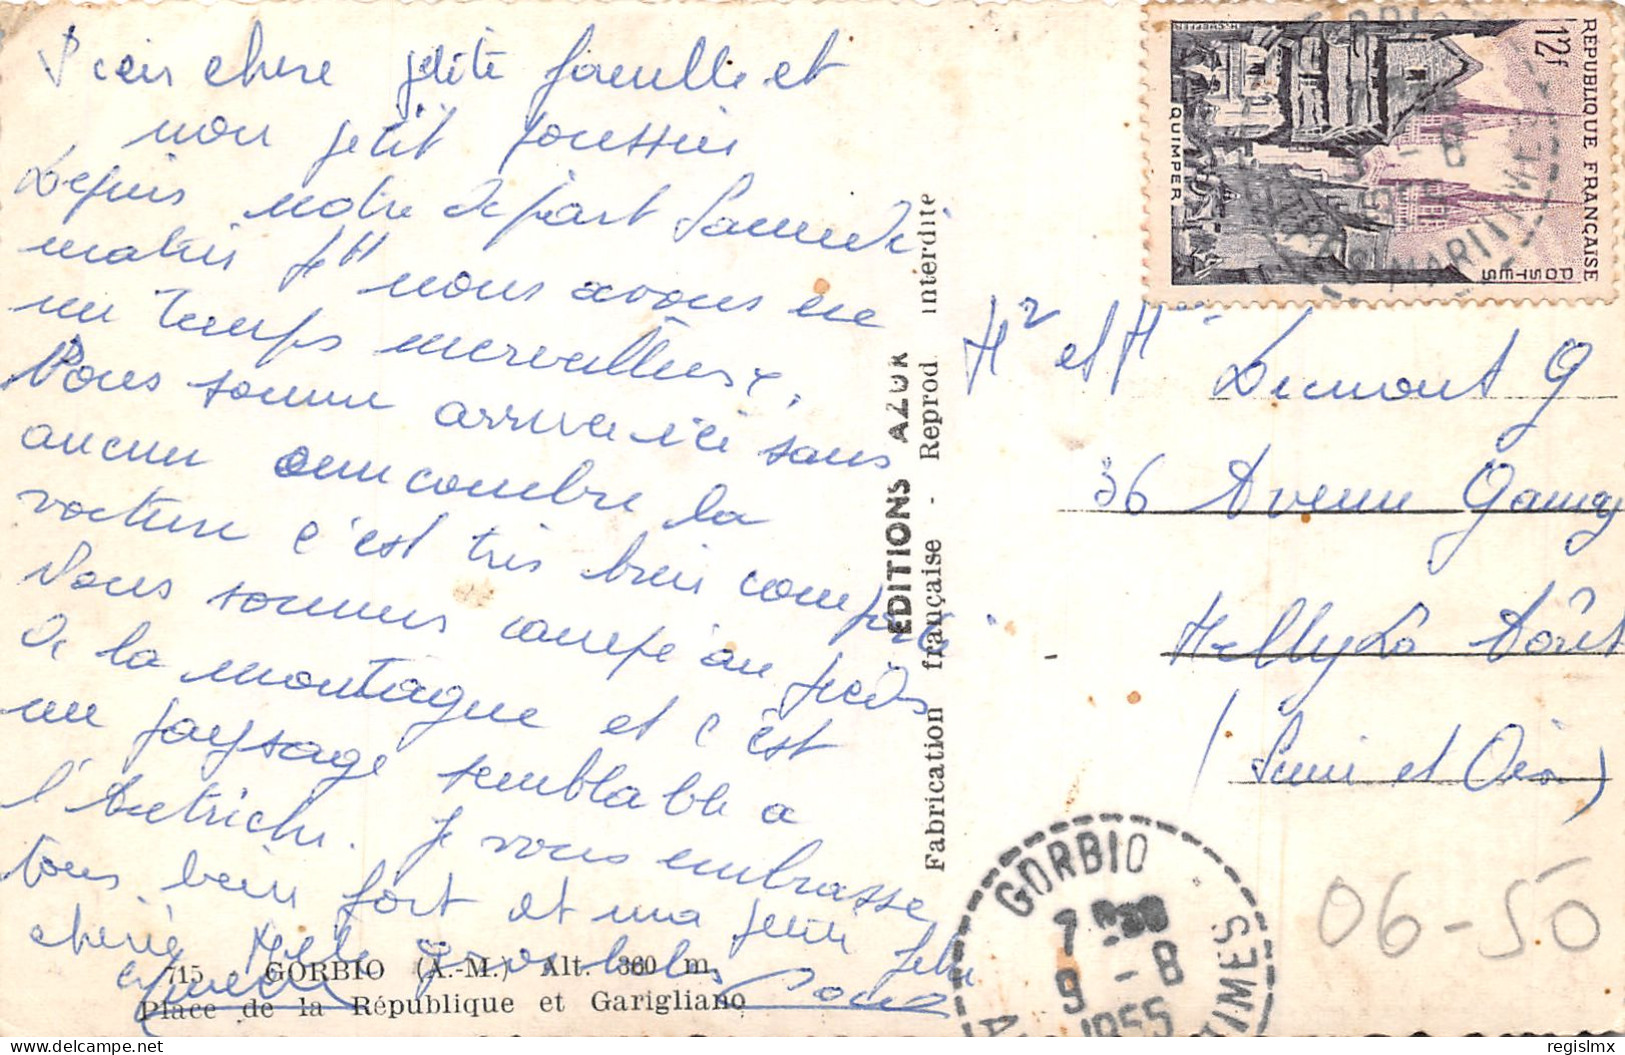 Bien chere petite famille et
mon petit poussin
Depuis notre depart Samedi
matin 7H nous avons eu
un temps merveilleux.
Nous somme arrivee ici sans
aucun emcombre la
voiture c'est très bien comporté.
Nous sommes campé au pieds
de la montagne et c'est
un paysage semblable a
l'Autriche. Je vous embrasse
tous bien fort et ma
cherie
715 GORBIO (A.-M.) Alt. 360 m.
Place de la République et Garigliano
EDITIONS AZUR
Fabrication française - Reprod interdite
RÉPUBLIQUE FRANÇAISE
12f
POSTES
QUIMPER
MARITIME
Mr et Mme Dumont G
36 Avenue
(Seine et Oise)
GORBIO
7
9 - 8
1955
TIMES
06-50
regislmx